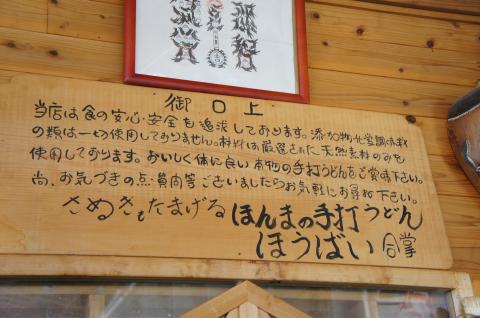 御口上
当店は食の安心・安全を追求しております。添加物・化学調味料
の類は一切使用しておりません。材料は厳選された天然素材のみを
使用しております。おいしく体に良い本物の手打うどんをご賞味下さい。
尚、お気づきの点、質問等ございましたらお気軽にお尋ね下さい。
さぬきもたまげる ほんまの手打うどん
ほうばい 合掌